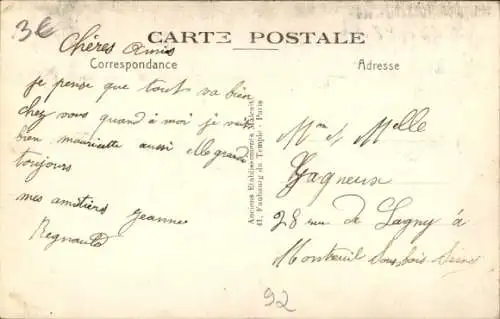 3€
CARTE POSTALE
Chères Amies
Correspondance
je pense que tout va bien
chez vous quand à moi je vais
bien mauricette aussi elle grandi
toujours
mes amitiers Jeanne
Regnault
Anciens Etablissements Malcuit
41, Faubourg du Temple - Paris
Adresse
Mme et Melle
Gagneux
28 rue de Lagny à
Montreuil Sous bois Seine
92